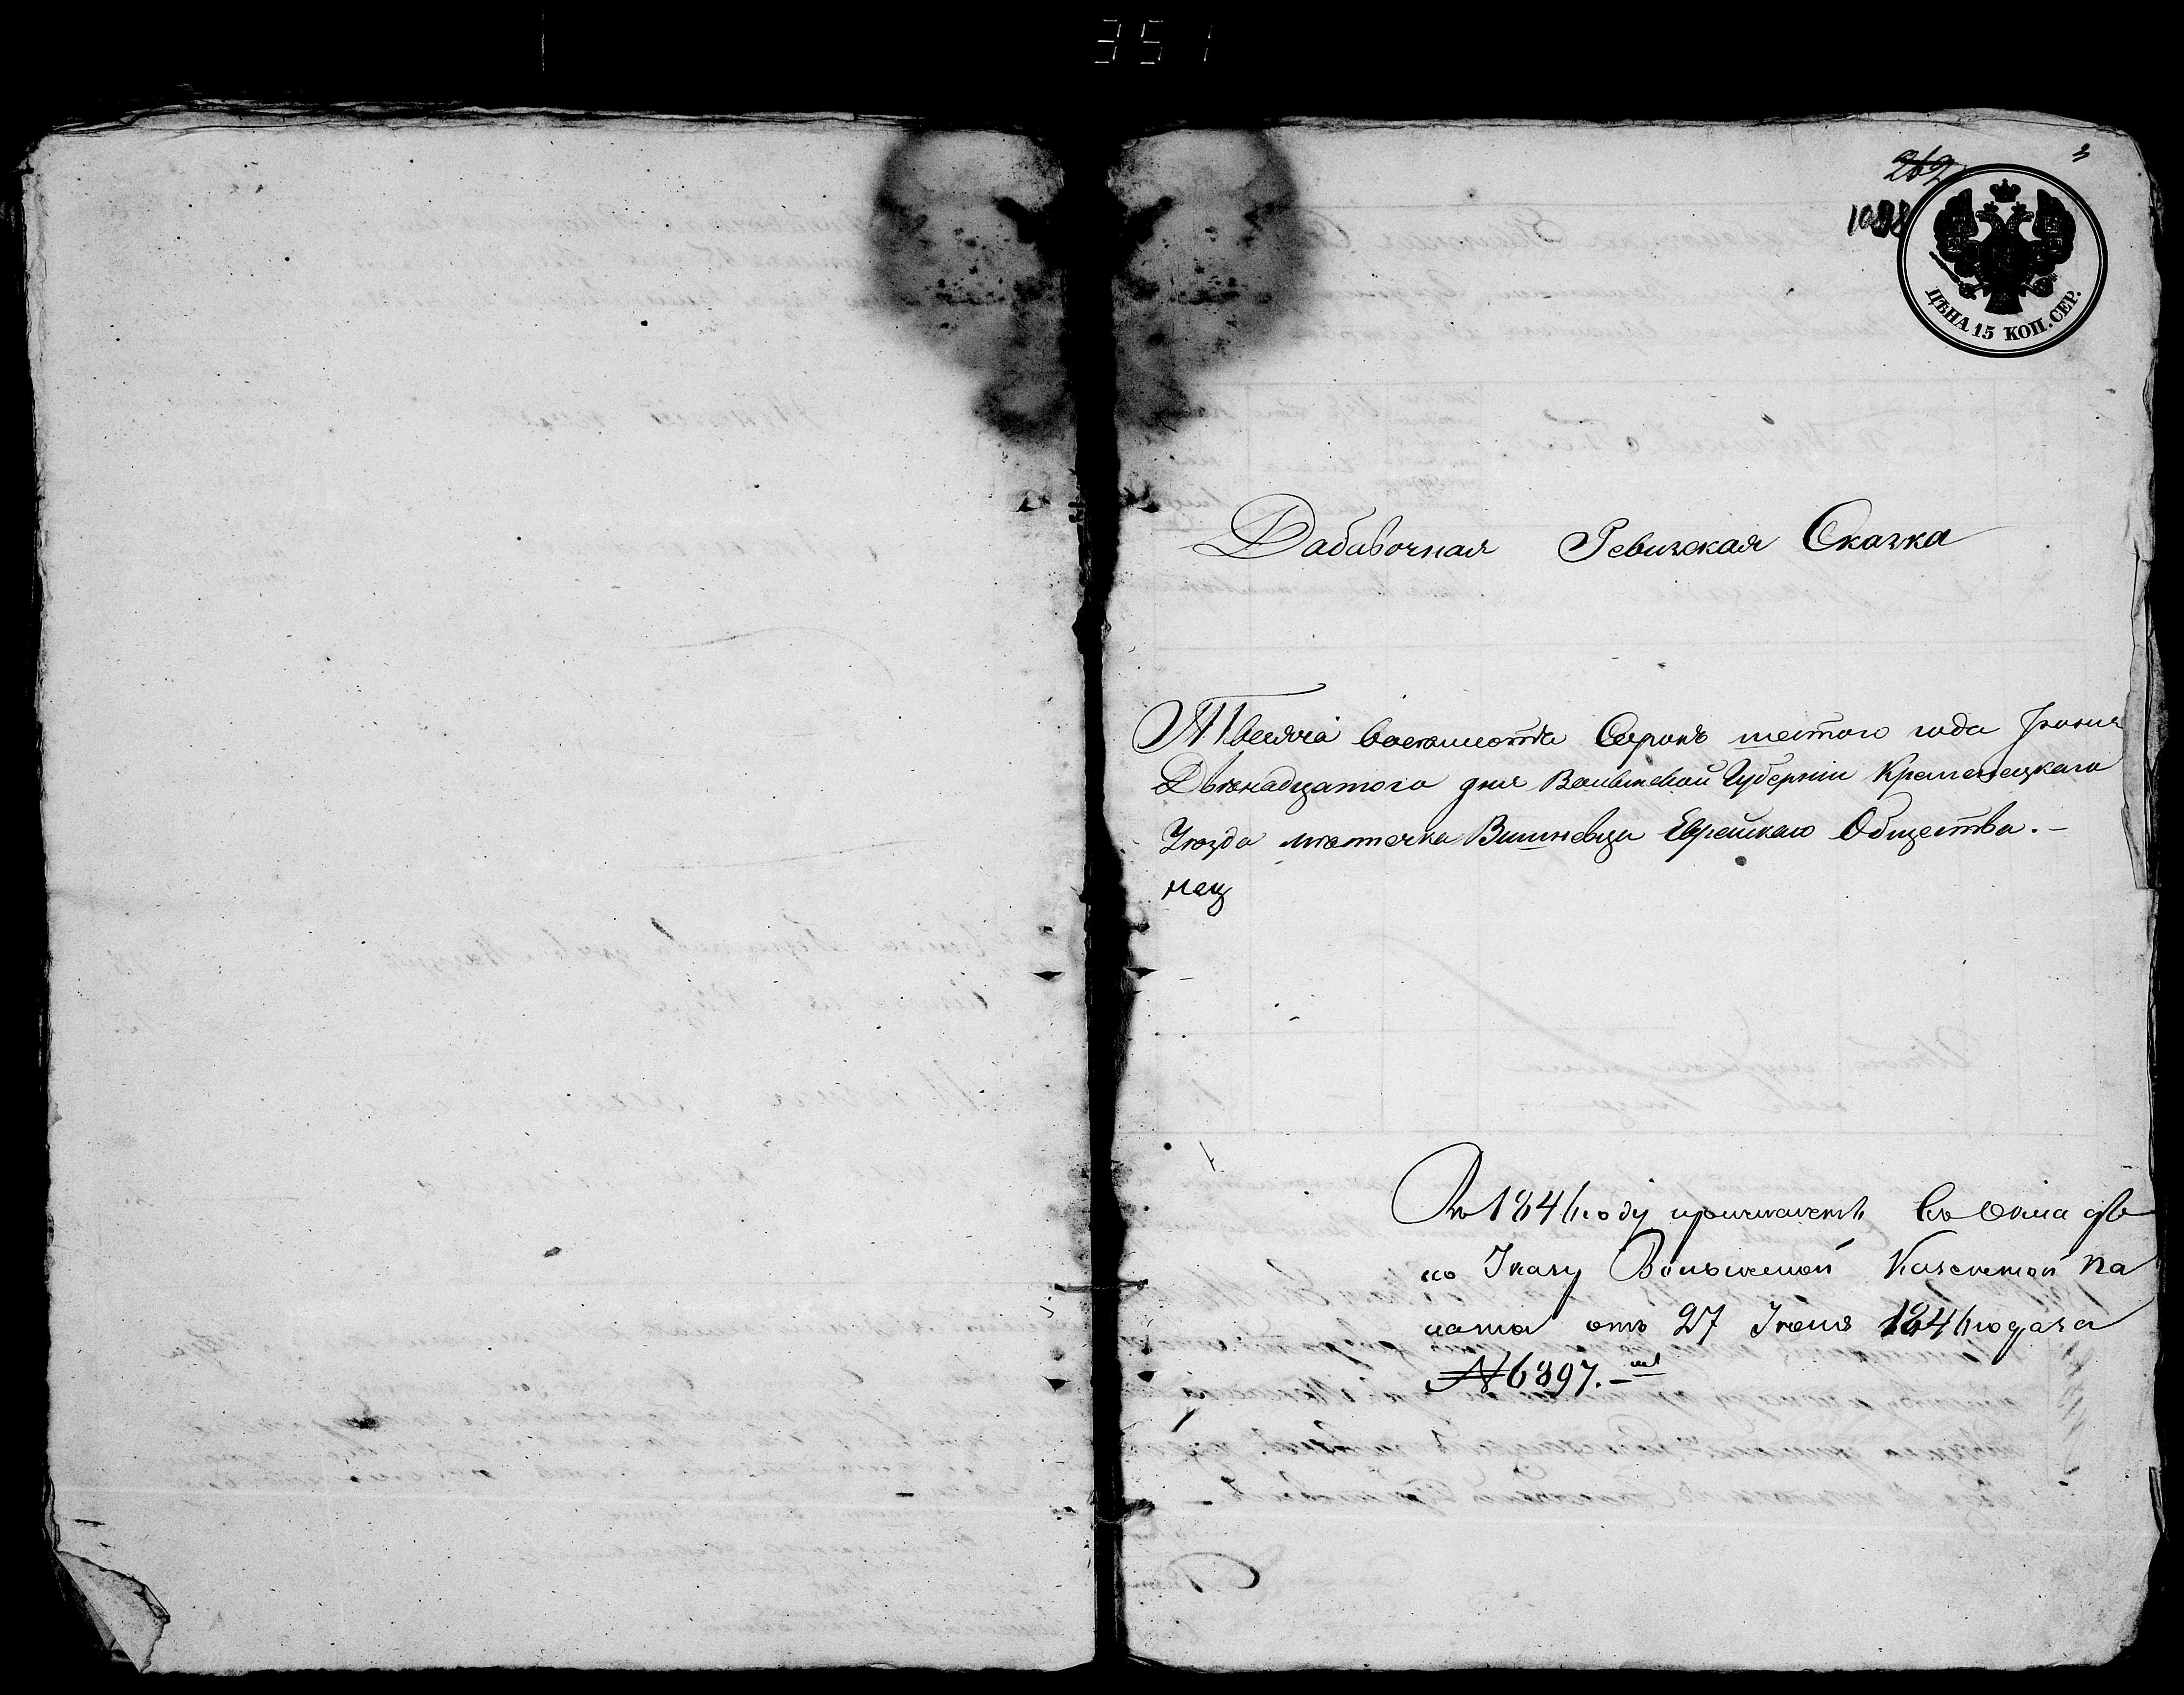 351
262
3
1098
ЦѢНА 15 КОП. СЕР.
Дабавочная Ревизская Сказка
Тысяча восемсотъ Сорокъ шестого года Іюния
Двенадцатого дня Волынской Губерніи Кременецкаго
Уезда местечка Вишневца Еврейскаго Общества.-
мещ
Въ 1846 году причислент въ
по Указу Волынской Казенной Па
латы отъ 27 Іюня 1846 года за
№ 6897.